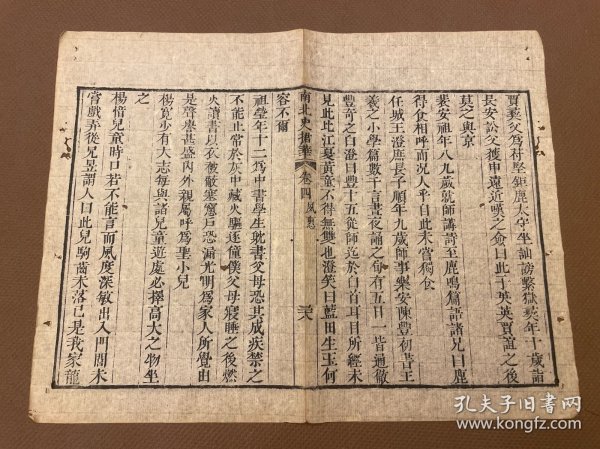 賈彝父為苻堅鉅鹿太守坐訕謗繫獄彝年十歲詣
長安訟父獲申遠近嘆之僉曰此子英英賈誼之後
莫之與京
裴安祖年八九歲就師講詩至鹿鳴篇語諸兄曰鹿
得食相呼而況人乎自此未嘗獨食
任城王澄庶長子順年九歲師事樂安陳豐初書王
羲之小學篇數千言晝夜誦之旬有五日一皆通徹
豐奇之白澄曰豐十五從師迄於白首耳目所經未
見此比江夏黃童不得無雙也澄笑曰藍田生玉何
南北史捃華 卷四 夙惠 三六
容不爾
祖瑩年十二為中書學生躭書父母恐其成疾禁之
不能止常於灰中藏火驅逐僮僕父母寢睡之後燃
火讀書以衣被蔽塞窻戶恐漏光明為家人所覺由
是聲譽甚盛內外親屬呼為聖小兒
楊寬少有大志每與諸兒童遊處必擇高大之物坐
之
楊愔兒童時口若不能言而風度深敏出入門閭未
嘗戲弄從兄昱謂人曰此兒駒齒未落已是我家龍
孔夫子旧书网
www.kongfz.com